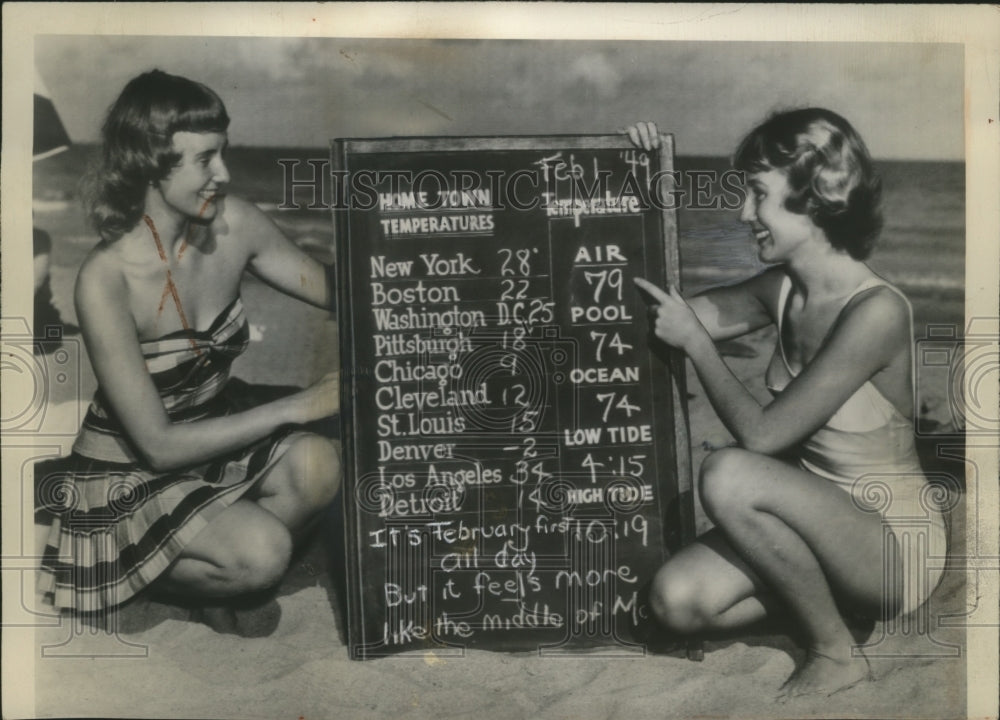 Feb 1 '49
HOME TOWN
TEMPERATURES
New York 28°
Boston 22
Washington D.C. 25
Pittsburgh 18
Chicago 9
Cleveland 12
St. Louis 15
Denver -2
Los Angeles 34
Detroit 14
Temprature
AIR
79
POOL
74
OCEAN
74
LOW TIDE
4:15
HIGH TIDE
10:19
It's February first
all day
But it feels more
like the middle of
HISTORIC IMAGES